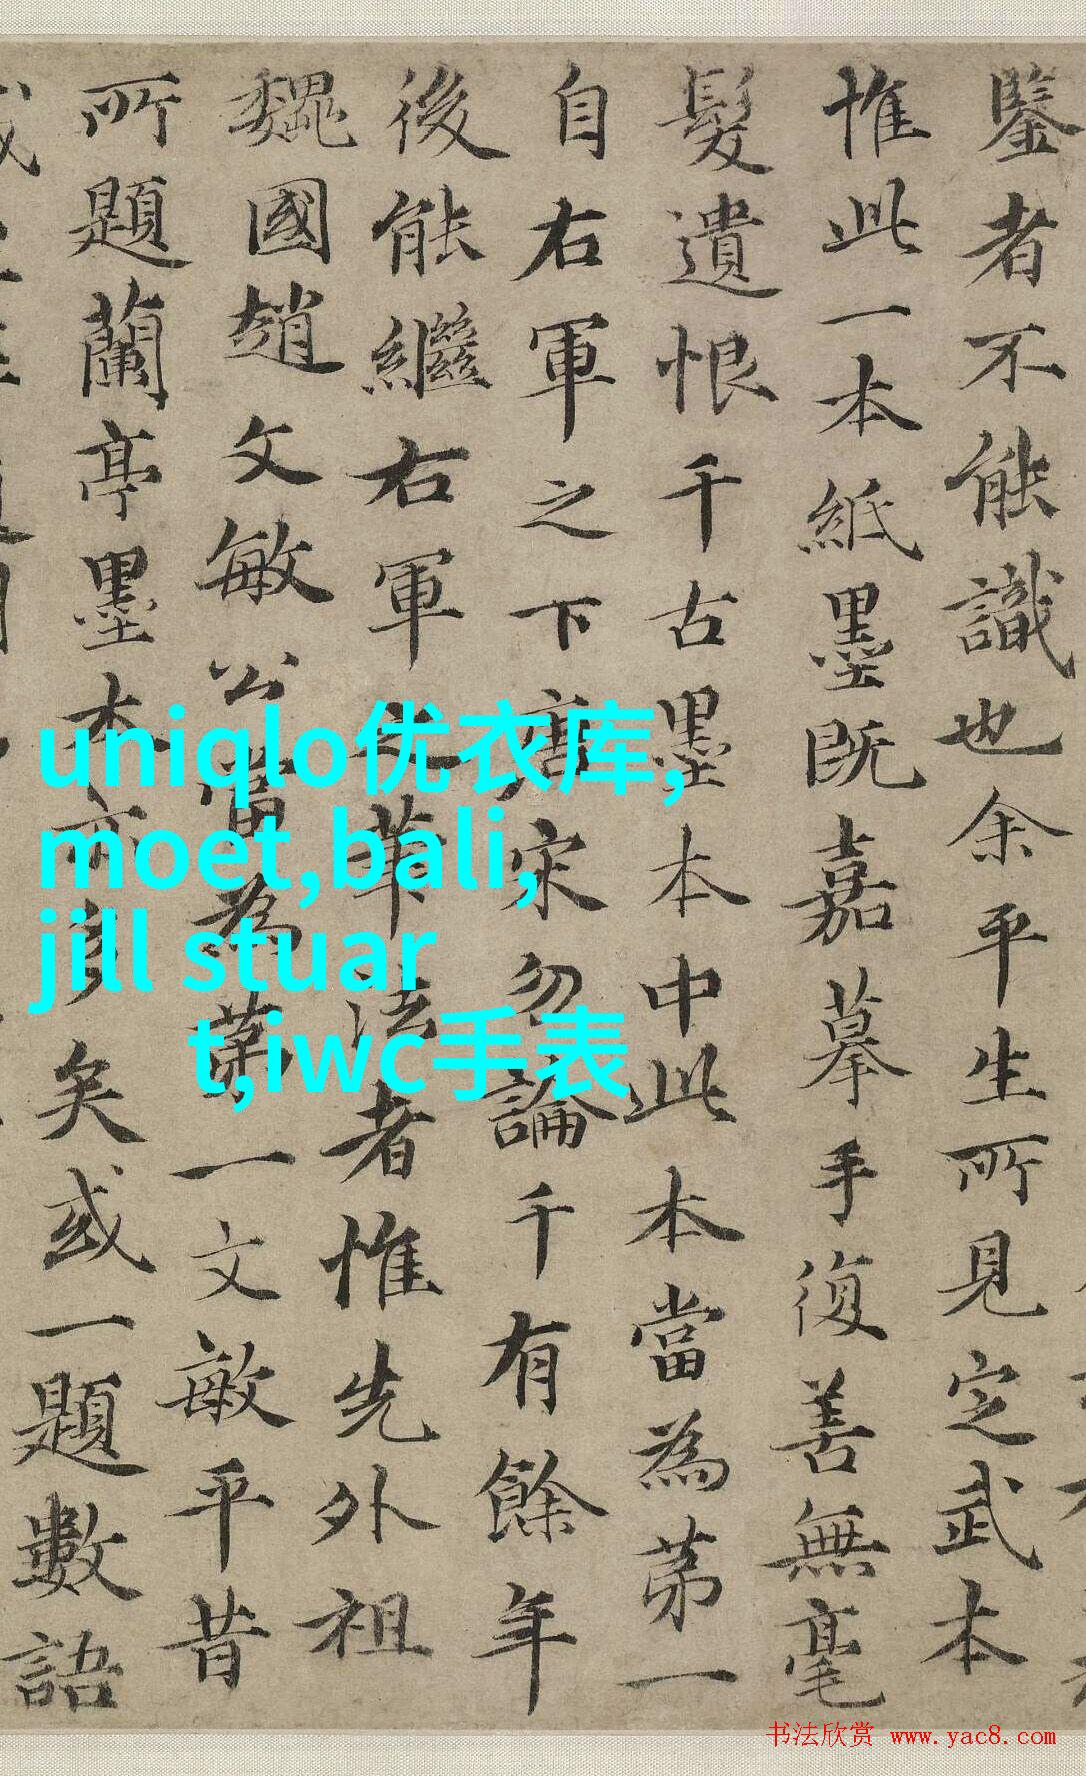 鑒者不能識也余平生所見定武本
惟此一本紙墨既嘉摹手復善無毫
髮遺恨千古墨本中此本當為第一
自右軍之下唐宋勿論千有餘年
後能繼右軍筆法者惟先外祖
魏國趙文敏公當為第一文敏平昔
所題蘭亭墨本亦多矣或一題數語
uniqlo优衣库,
moet,bali,
jill stuar
t,iwc手表
书法欣赏 www.yac8.com